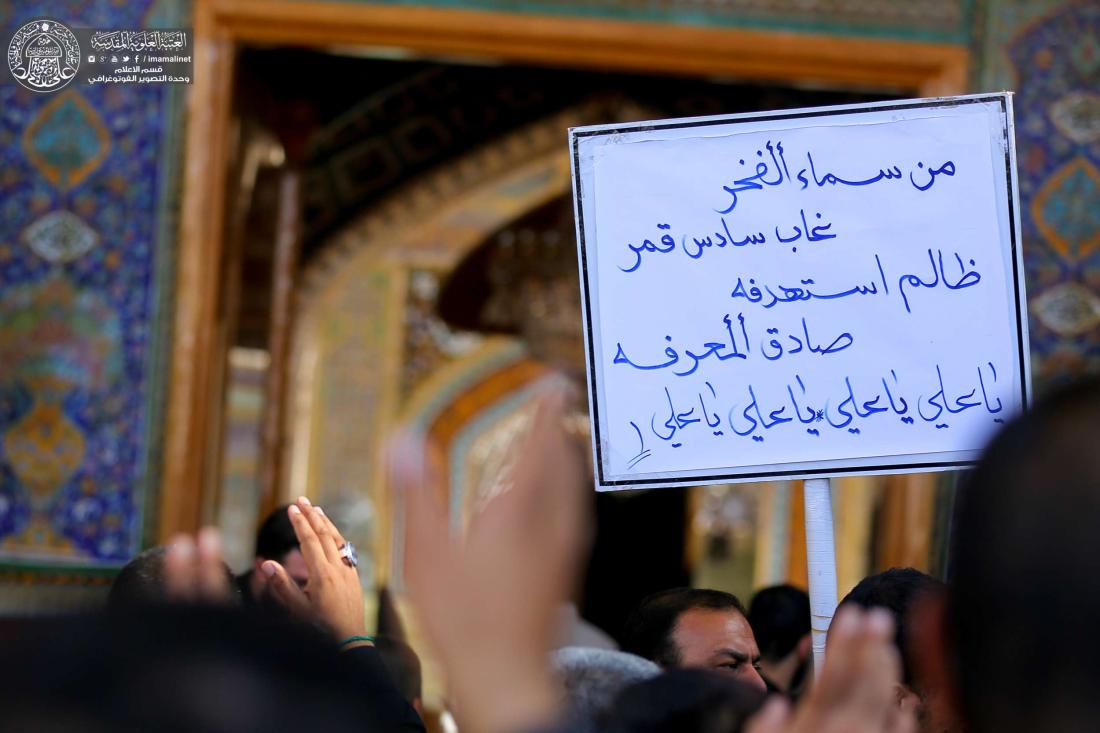 العتبة العلوية المقدسة
/ imamalinet
قسم الاعلام
وحدة التصوير الفوتوغرافي
من سماء ألفخر
غاب سادس قمر
ظالم استهدفه
صادق ألمعرفه
ياعلي ياعلي * ياعلي ياعلي